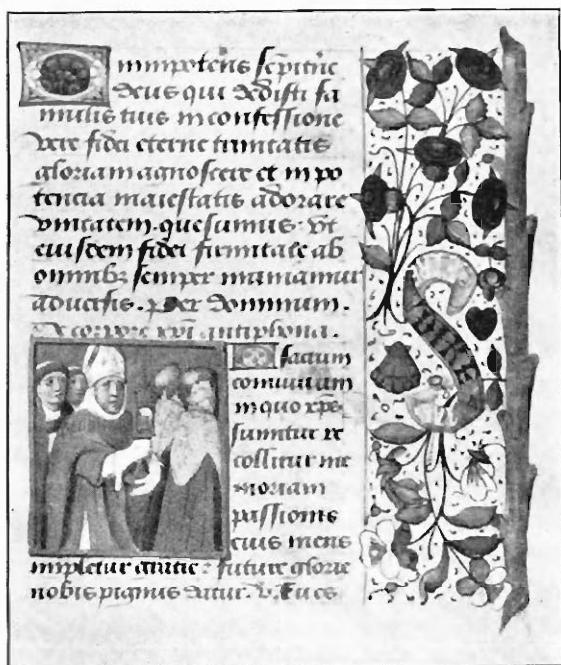 Omnipotens sēpitne
deus qui dedisti fa
mulis tuis in confessione
vere fidei eterne trinitatis
gloriam agnoscere et in po
tencia maiestatis adorare
vnitatem. quesumus. vt
eiusdem fidei firmitate ab
omnibz semper muniamur
aduersis. per dominum.
De corpore xp̄i antiphona.
O sacrum
conuiuium
in quo xp̄c
sumitur re
collitur me
moriam
passionis
eius mens
impletur gratie : future glorie
nobis pignus datur. v.